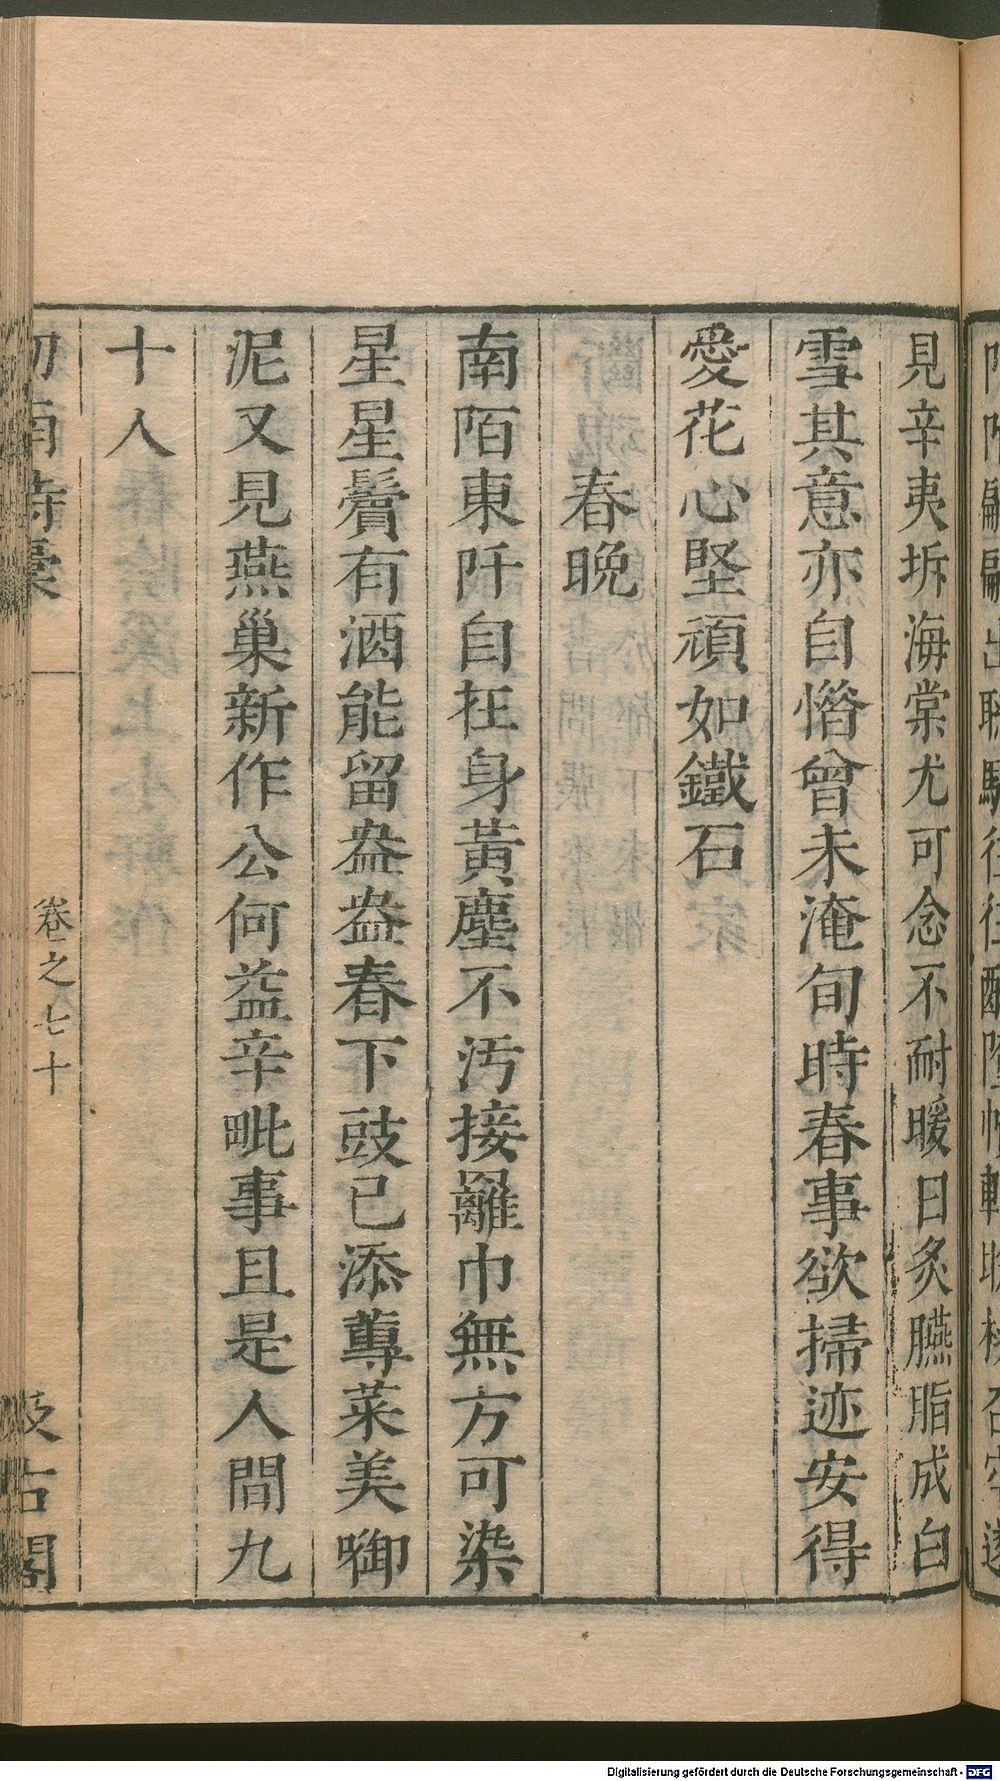 見辛夷坼海棠尤可念不耐暖日炙臙脂成白
雪其意亦自惜曾未淹旬時春事欲掃迹安得
愛花心堅頑如鐵石
春晚
南陌東阡自在身黃塵不汚接䍦巾無方可染
星星鬢有酒能留盎盎春下豉已添蓴菜美啣
泥又見燕巢新作公何益辛毗事且是人間九
十人
卷之七十
Digitalisierung gefördert durch die Deutsche Forschungsgemeinschaft - DFG